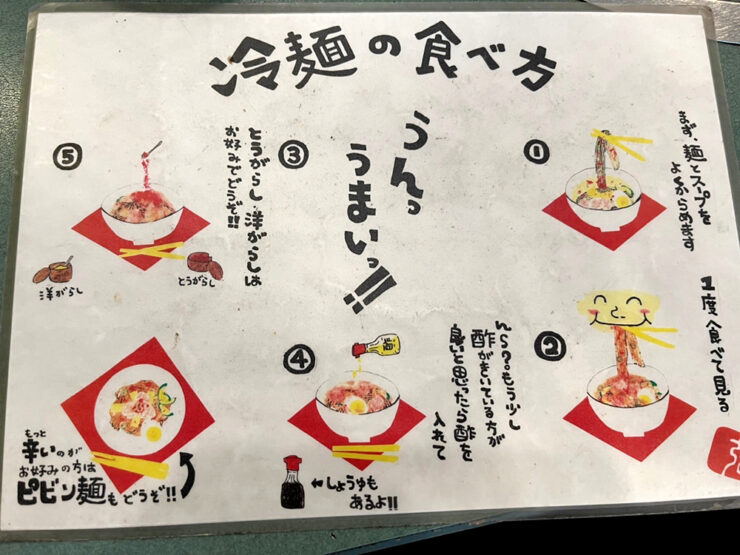 冷麺の食べ方
①
まず、麺とスープを
よくからめます
②
1度食べて見る
③
うんっ
うまいっ!!
④
んら??もう少し
酢がきいている方が
良いと思ったら酢を
入れて
酢
←しょうゆも
あるよ!!
⑤
とうがらし 洋がらしは
お好みでどうぞ!!
洋がらし
とうがらし
もっと
辛いのが
お好みの方は
ピビン麺もどうぞ!!